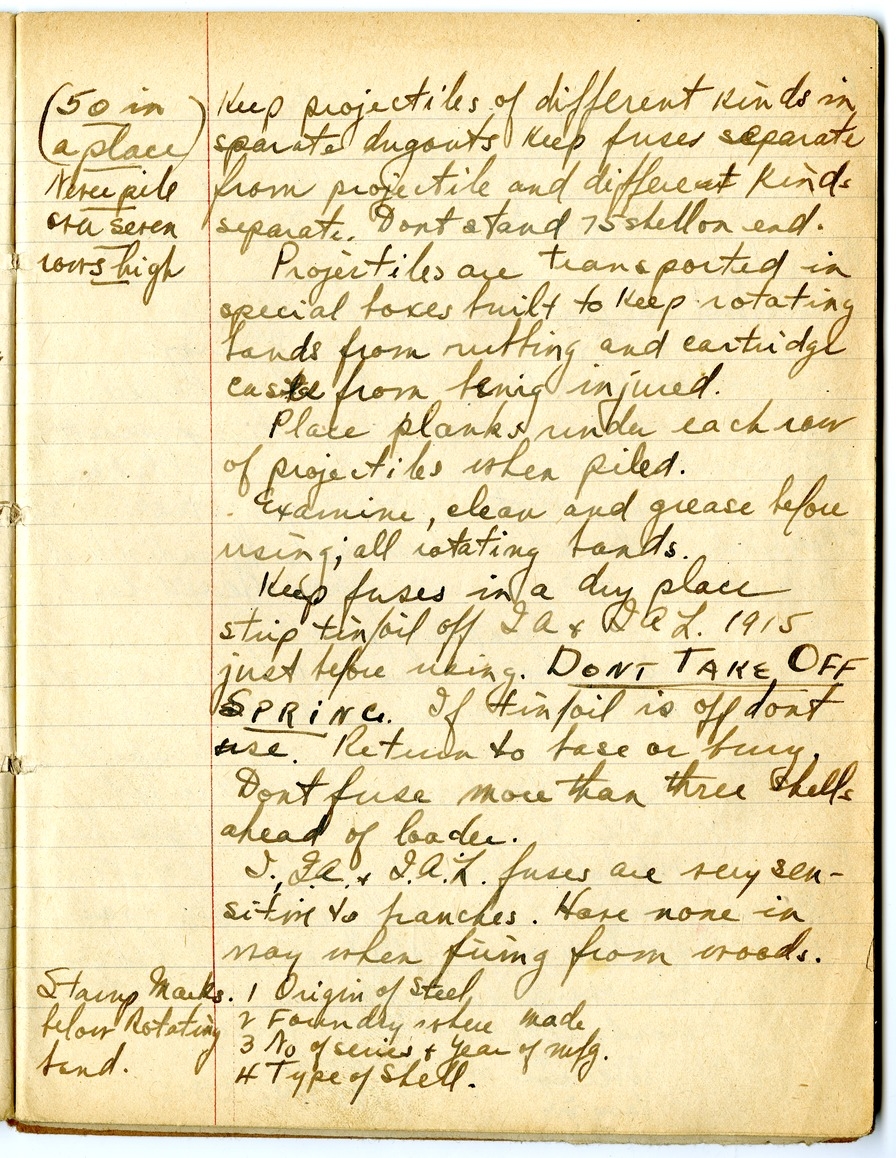 (50 in
a place)
Never pile
over seven
rows high
Keep projectiles of different kinds in
sparate dugouts Keep fuses separate
from projectile and different kinds
separate. Dont stand 75 shell on end.
Projectiles are transported in
special boxes built to keep rotating
bands from rubbing and cartridge
case from being injured.
Place planks under each row
of projectiles when piled.
Examine, clean and grease before
using; all rotating bands.
Keep fuses in a dry place
strip tinfoil off I A & I A L. 1915
just before using. DONT TAKE OFF
SPRING. If tinfoil is off dont
use. Return to base or bury.
Dont fuse more than three shells
ahead of loader.
I., I.A. & I.A.L. fuses are very sen-
sitive to branches. Have none in
way when firing from woods.
Stamp Marks.
below Rotating
band.
1 Origin of Steel
2 Foundry where made
3 No of series & Year of mfg.
4 Type of Shell.